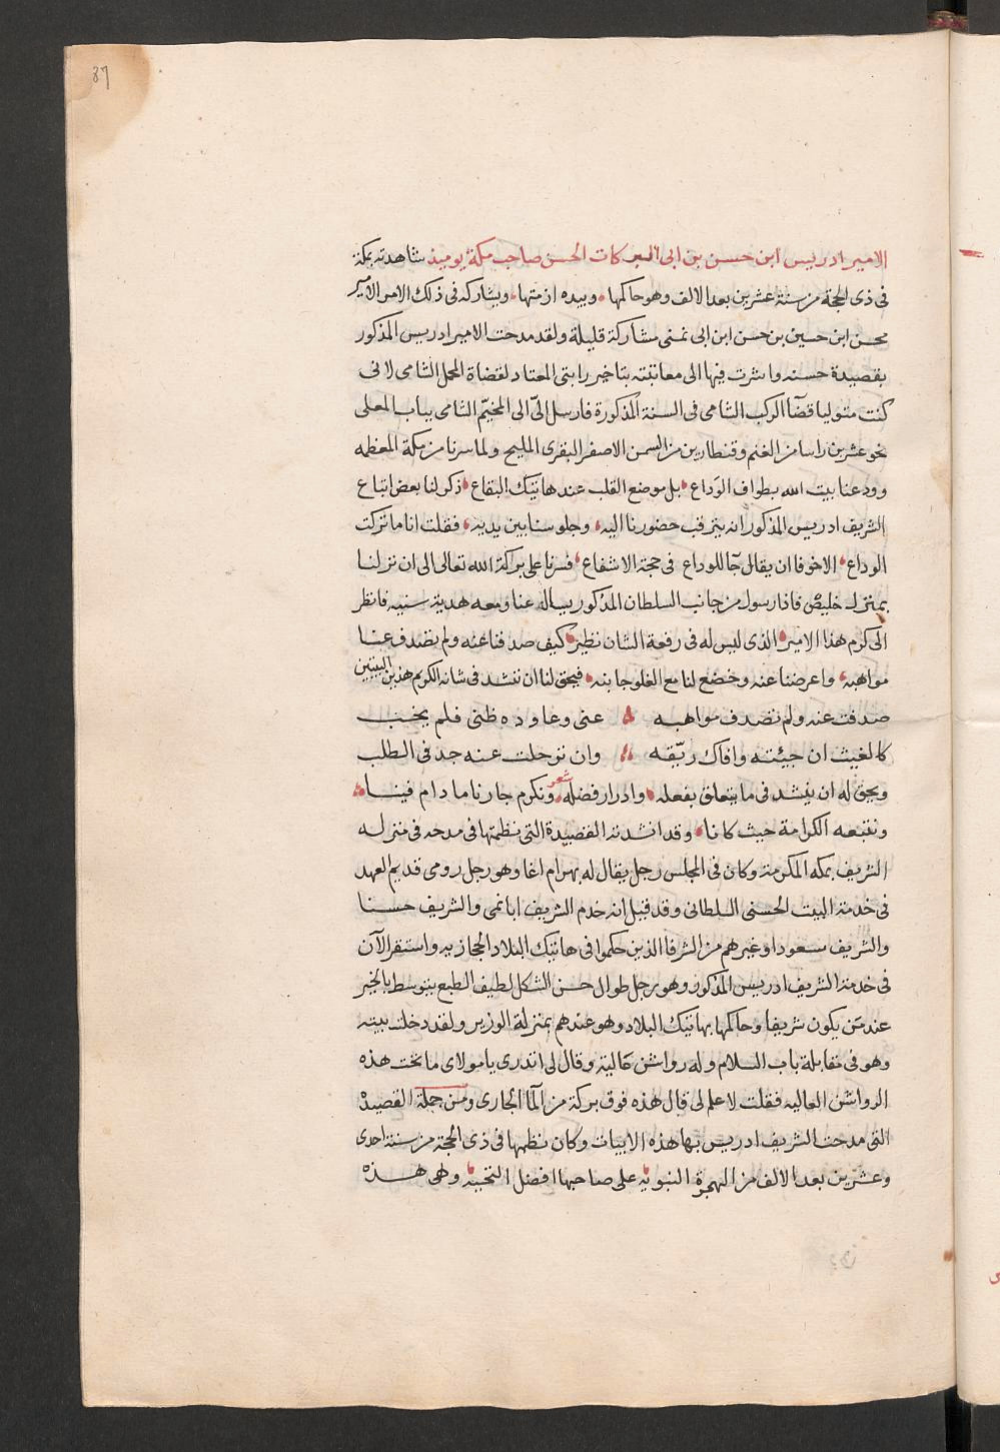 37
الامير ادريس ابن حسن بن ابى البركات الحسن صاحب مكة يوميذ شاهدته بمكة
فى ذى الحجة من سنة عشرين بعد الالف وهو حاكمها، وبيده ازمتها، ويشاركه فى ذلك الامر الامير
محسن ابن حسين بن حسن ابن ابى نمى مشاركة قليلة ولقد مدحت الامير ادريس المذكور
بقصيدة حسنه واشرت فيها الى معاتبته بتاخير راتبى المعتاد لقضاة المحمل الشامى لانى
كنت متوليا قضآ الركب الشامى فى السنة المذكورة فارسل الىّ الى المخيّم الشامى بباب المعلى
نحو عشرين راسا من الغنم وقنطارين من السمن الاصفر البقرى المليح ولما سرنا من مكة المعظمه
وودعنا بيت الله بطواف الوَداع، بل موضع القلب عند هاتيك البقاع، ذكر لنا بعض اتباع
الشريف ادريس المذكور انه يترقب حضورنا اليه، وجلوسنا بين يديه، فقلت انا ما تركت
الوداع، الا خوفا ان يقال جآ للوداع فى حجة الاشفاع، فسرنا على بركة الله تعالى الى ان نزلنا
بمنزل خليص فاذا رسول من جانب السلطان المذكور يساله عنا ومعه هدية سنيه فانظر
الى كرم هذا الامير، الذى ليس له فى رفعة الشان نظير، كيف صدفنا عنه ولم يصدف عنا
مواهبه، واعرضنا عنه وخضع لنا مع العلو جانبه، فيحق لنا ان ننشد فى شانه الكريم هذين البيتين
صدفت عنه ولم تصدف مواهبه عنى وعاوده ظنى فلم يخب
كالغيث ان جيئته وافاك ريّقه وان ترحلت عنه جد فى الطلب
ويحق له ان ينشد فى ما يتعلق بفعله، وادرار فضله، شعر ونكرم جارنا ما دام فينا
ونتبعه الكرامة حيث كانا، وقد انشدته القصيدة التى نظمتها فى مدحه فى منزله
الشريف بمكه المكرمة وكان فى المجلس رجل يقال له بهرام اغا وهو رجل رومى قديم العهد
فى خدمة البيت الحسنى السلطانى وقد قيل انه خدم الشريف ابا نمى والشريف حسنا
والشريف مسعودا وغيرهم من الشرفا الذين حكموا فى هاتيك البلاد الحجازيه واستقر الآن
فى خدمة الشريف ادريس المذكور وهو رجل طوال حسن الشكل لطيف الطبع يتوسط بالخير
عند مَن يكون شريفا وحاكما بهاتيك البلاد وهو عندهم بمنزلة الوزير ولقد دخلت بيته
وهو فى مقابلة باب السلام وله رواشن عَالية وقال لى اتدرى يا مولاى ما تحت هذه
الرواشن العاليه فقلت لا علم لى قال هذه فوق بركة من المآ الجارى ومن جملة القصيدة
التى مدحت الشريف ادريس بها هذه الابيات وكان نظمها فى ذى الحجة من سنة احدى
وعشرين بعد الالف من الهجرة النبويه على صاحبها افضل التحيه وهى هذه